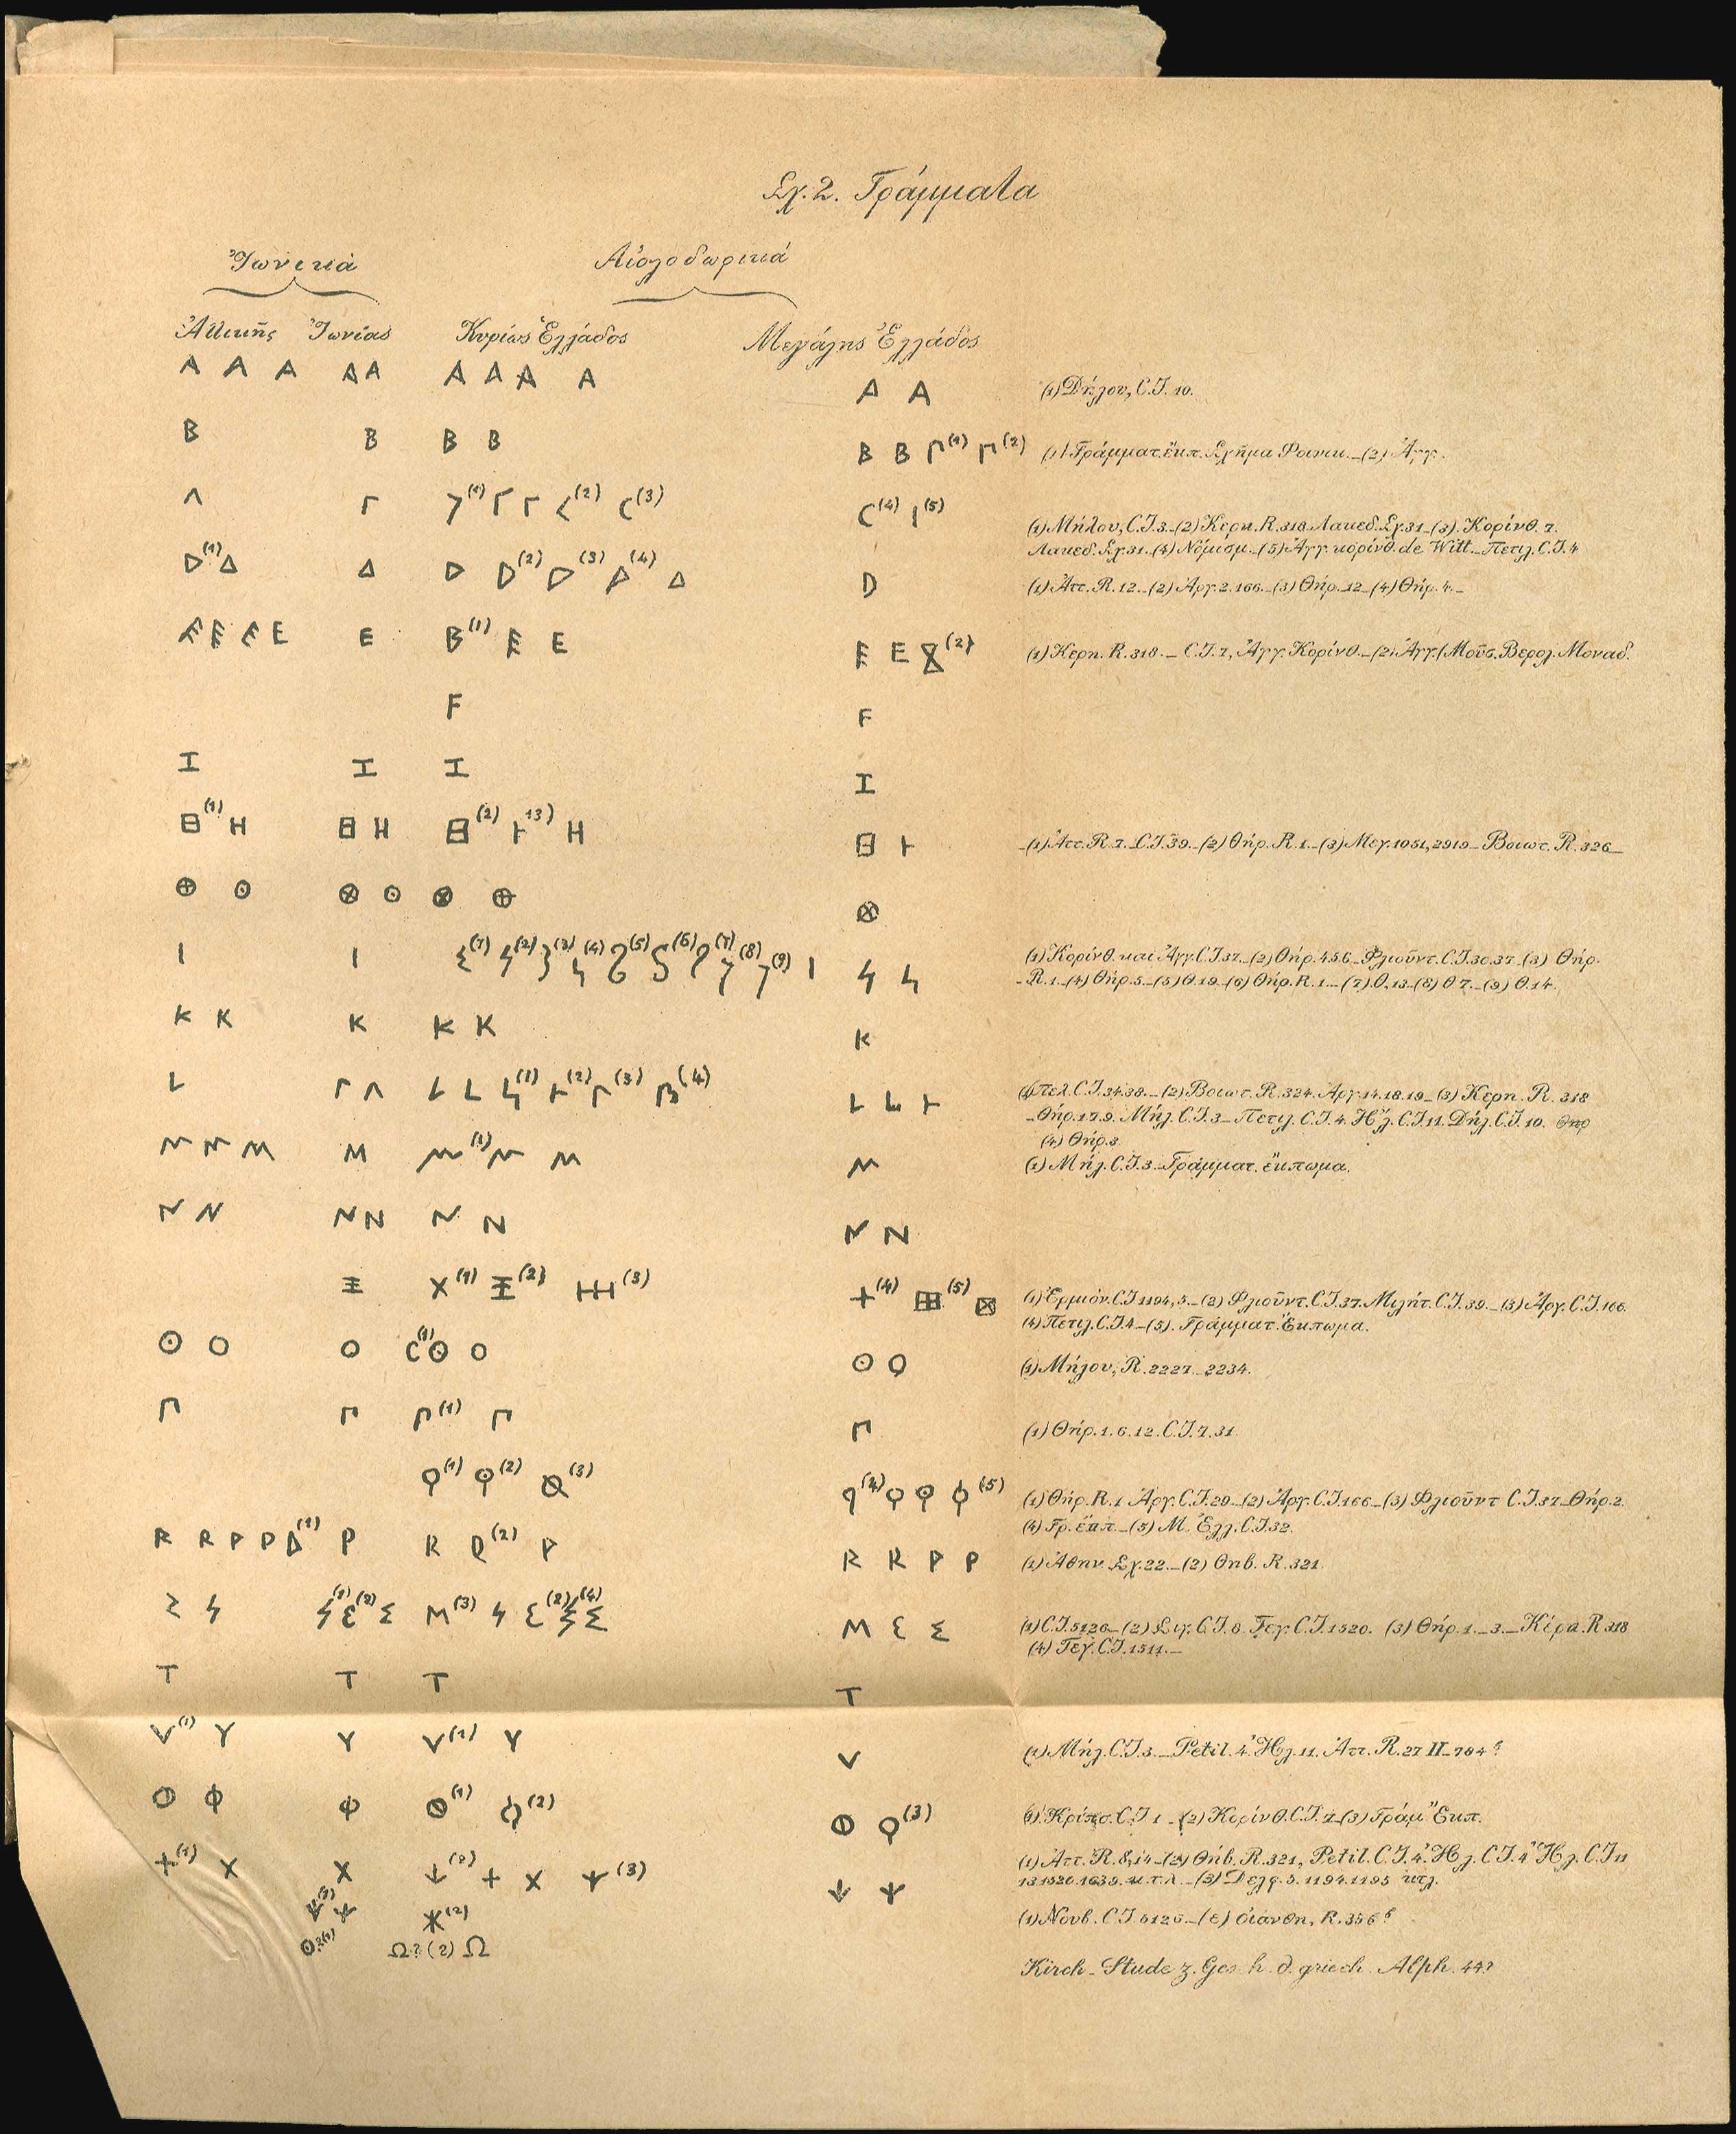 Σχ. 2. Γράμματα
Ἰωνικά Αἰολοδωρικά
Ἀττικῆς Ἰωνίας Κυρίως Ἑλλάδος Μεγάλης Ἑλλάδος
Α Α Α Α Α Α Α Α Α Α Α (1) Δήλου, C.I. 10.
Β Β Β Β Β Β (1) (2) (1) Γράμματ. ἔκπ. Σχῆμα Φοινικ. – (2) Ἀγγ.
Λ Γ (1) Γ Γ (2) C(3) C(4) Ι(5) (1) Μήλου, C.I. 3 – (2) Κερκ. R. 318 Λακεδ. Σχ. 31 – (3) Κορίνθ. 7.
Λακεδ. Σχ. 31 – (4) Νόμισμ. – (5) Ἀγγ. κορίνθ. de Witt. – Πετιλ. C.I. 4
(1) Δ Δ (2) (3) (4) Δ D (1) Ἀττ. R. 12. – (2) Ἀργ. 2. 166. – (3) Θήρ. 12 – (4) Θήρ. 4. –
Ε Ε Ε Ε Ε Β(1) Ε Ε Ε Ε (2) (1) Κερκ. R. 318. – C.I. 7, Ἀγγ. Κορίνθ. – (2) Ἀγγ. (Μοῦσ. Βερολ. Μοναδ.
F F
Ι Ι Ι Ι
(1) Η Η (2) (3) Η (1) Ἀττ. R. 7. C.I. 39. – (2) Θήρ. R. 1. – (3) Μεγ. 1051, 2919 – Βοιωτ. R. 326 –
⊕ ⊙ ⊗ ⊙ ⊗ ⊕ ⊗
Ι Ι (1) (2) (3) (4) (5) (6) (7) (8) (9) Ι (1) Κορίνθ. καὶ Ἀγγ. C.I. 37. – (2) Θήρ. 4.5.6 – Φλιοῦντ. C.I. 30.37 – (3) Θήρ.
R. 1. – (4) Θήρ. 5 – (5) Θ. 19 – (6) Θήρ. R. 1. – (7) Θ. 13 – (8) Θ 7. – (9) Θ. 14.
Κ Κ Κ Κ Κ Κ
L Γ Λ L L (1) (2) Γ(3) (4) L (1) Πελ. C.I. 34.38. – (2) Βοιωτ. R. 324. Ἀργ. 14.18.19 – (3) Κερκ. R. 318
Θήρ. 1.7.9. Μήλ. C.I. 3 – Πετιλ. C.I. 4. Ἤλ. C.I. 11. Δήλ. C.I. 10.
(4) Θήρ. 3
Μ Μ Μ Μ Μ(1) Μ Μ Μ (1) Μήλ. C.I. 3. Γράμματ. ἔκπωμα.
Ν Ν Ν Ν Ν Ν Ν Ν
Ξ Χ(1) (2) (3) +(4) ⊞(5) ⊠ (1) Ἑρμιόν. C.I. 1194, 5. – (2) Φλιοῦντ. C.I. 37. Μιλήτ. C.I. 39. – (3) Ἀργ. C.I. 166.
(4) Πετιλ. C.I. 4 – (5). Γράμματ. Ἔκπωμα.
⊙ Ο Ο C(1) ⊙ Ο ⊙ Ο (1) Μήλου, R. 2227. 2234.
Π Π Π(1) Π Π (1) Θήρ. 1. 6. 12. C.I. 7. 31.
Ϙ(1) Ϙ(2) (3) Ϙ(4) Ϙ Ϙ Ϙ(5) (1) Θήρ. R. 1. Ἀργ. C.I. 29. – (2) Ἀργ. C.I. 166 – (3) Φλιοῦντ C.I. 37 – Θήρ. 2.
(4) Γρ. ἔκπ. – (5) Μ. Ἑλλ. C.I. 32.
R R Ρ Ρ (1) Ρ R (2) Ρ R R Ρ Ρ (1) Ἀθην. Σχ. 22. – (2) Θηβ. R. 321.
(1) (2) Σ Μ(3) (2) (4) Σ Μ Σ (1) C.I. 5126 – (2) Σιγ. C.I. 8. Τεγ. C.I. 1520. (3) Θήρ. 1. – 3. – R 318
(4) Τεγ. C.I. 1511. –
Τ Τ Τ Τ
V(1) Υ Υ V(1) Υ V (1) Μήλ. C.I. 3. – Petil. 4. Ἤλ. 11. Ἀττ. R. 27 II – 784
Φ Φ (1) (2) (3) C.I. 1 – (2) Κορίνθ. C.I. 7 – (3) Γράμ. Ἔκπ.
+(1) Χ Χ (2) + Χ (3) (1) Ἀττ. R. 8, 14 – (2) Θηβ. R. 321, Petil. C.I. 4. Ἤλ. C.I. 4 Ἤλ. C.I. 11
13. 1520. 1639. κ.τ.λ. – (3) Δελφ. 5. 1194. 1195 κτλ.
(3) (2) (1) Νουβ. C.I. 5126 – R. 356
Ω? (2) Ω
Kirch – Stude z. Ges h. d. griech. Alph. 44?